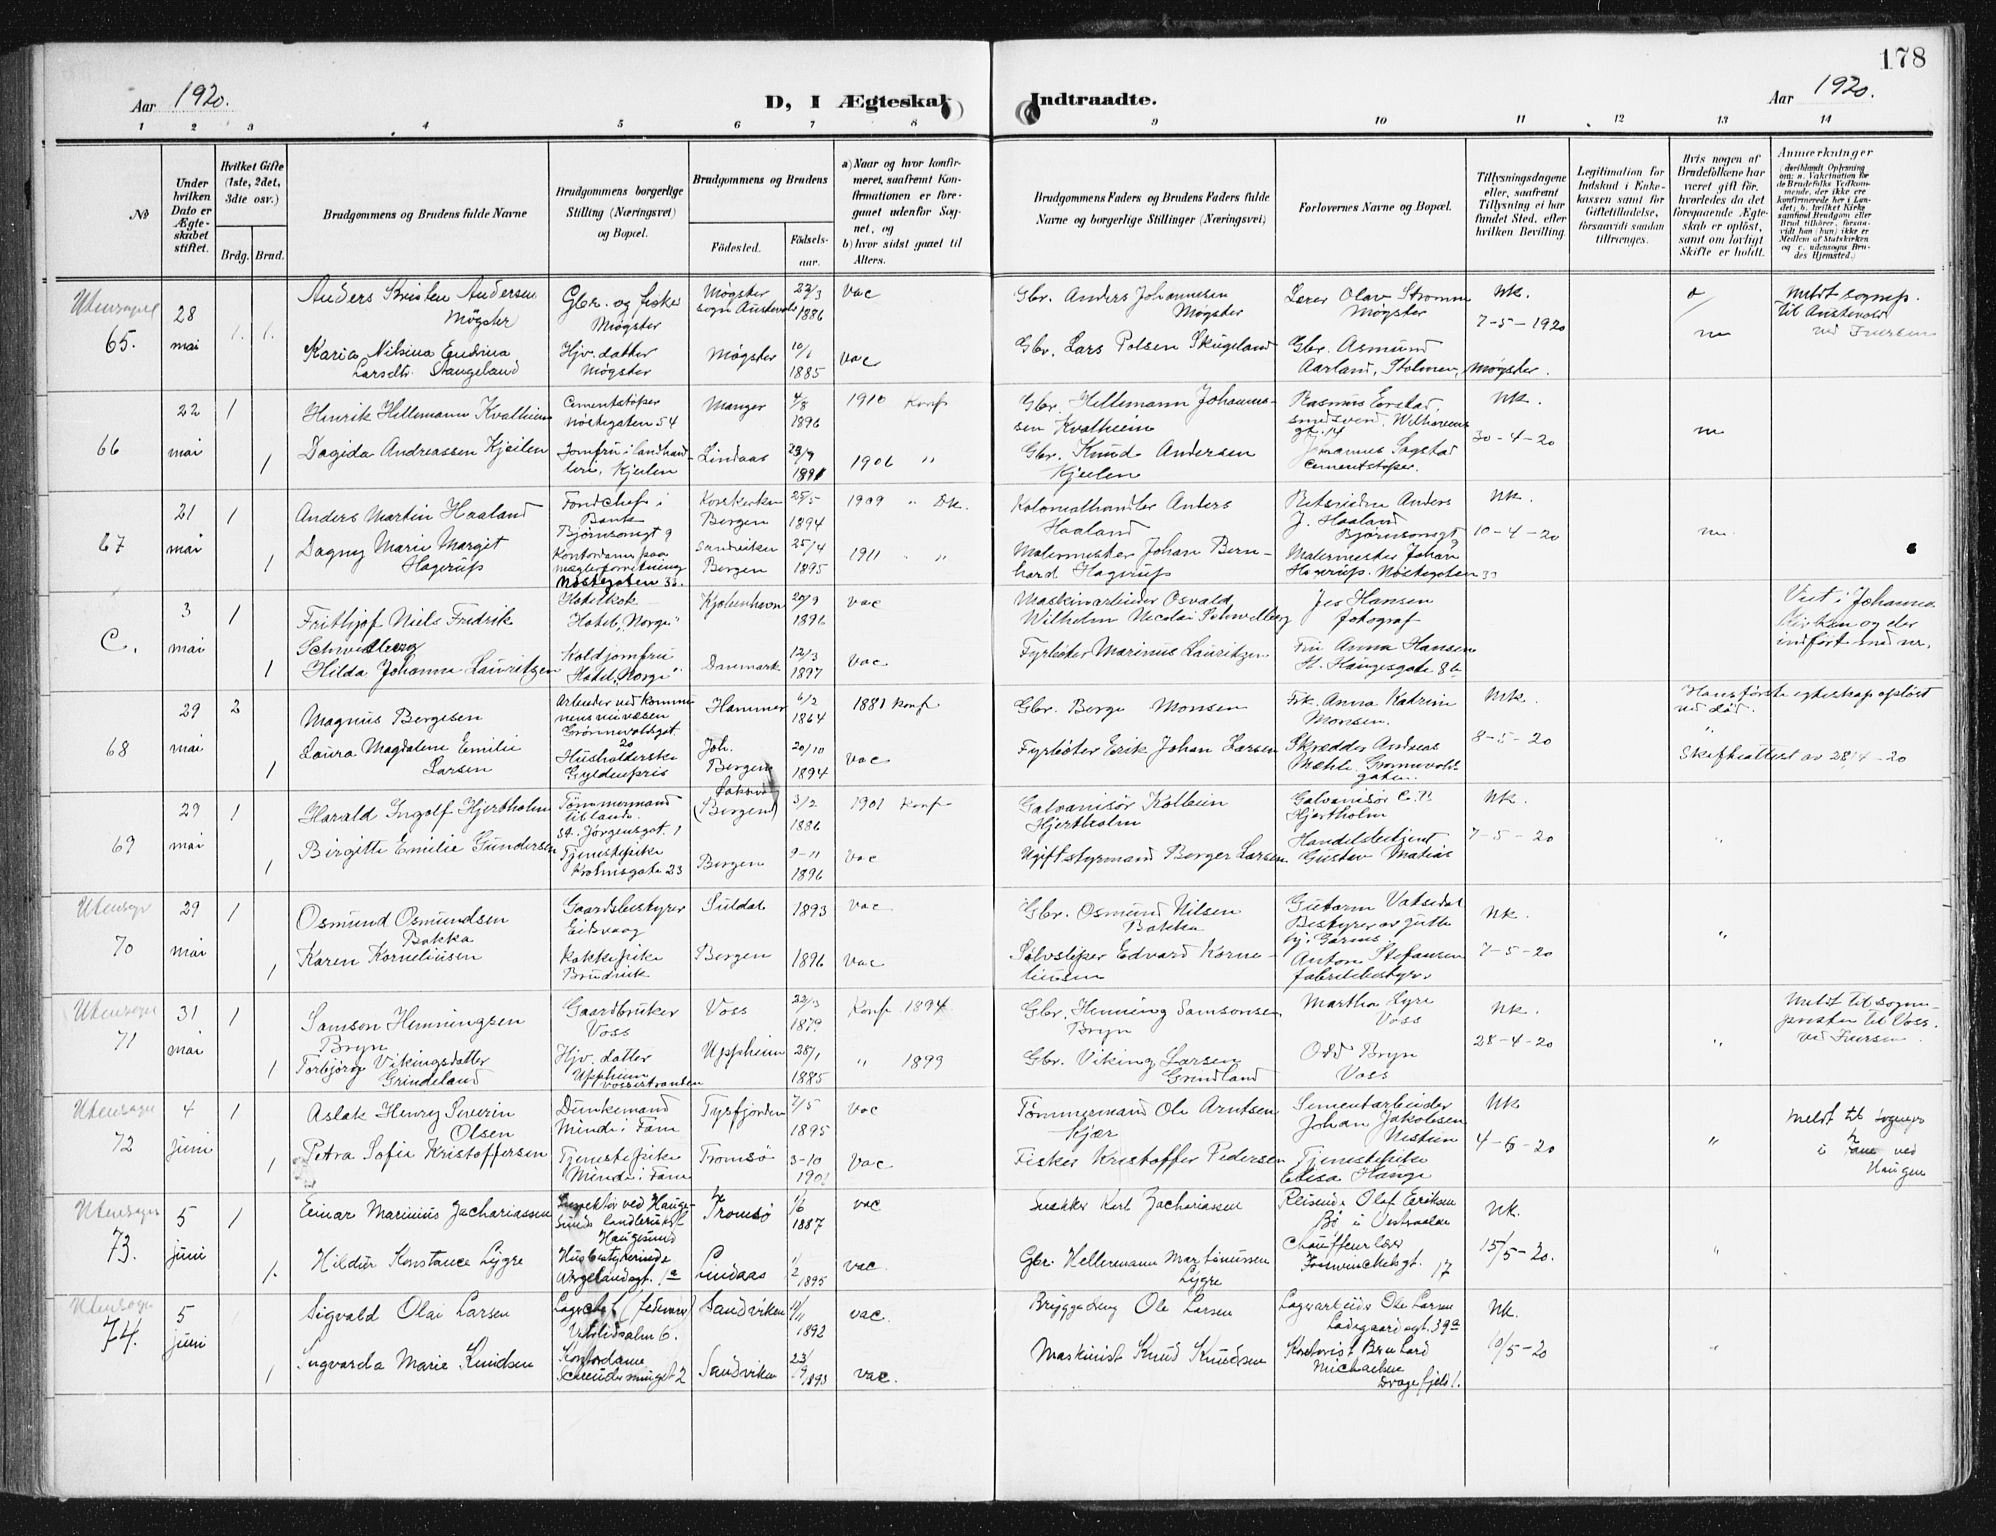 178
Aar 1920.
D, I Ægteskab
Indtraadte.
Aar 1920.
1 2 3 4 5 6 7 8 9 10 11 12 13 14
No
Under hvilken Dato er Ægteskabet stiftet.
Hvilket Gifte (1ste, 2det, 3die osv.)
Brdg. Brud.
Brudgommens og Brudens fulde Navne
Brudgommens borgerlige Stilling (Næringsvei) og Bopæl.
Brudgommens og Brudens
Fødested.
Fødselsaar.
a) Naar og hvor konfirmeret, saafremt Konfirmationen er foregaaet udenfor Sognet, og
b) hvor sidst gaaet til Alters.
Brudgommens Faders og Brudens Faders fulde Navne og borgerlige Stillinger (Næringsvei)
Forlovernes Navne og Bopæl.
Tillysningsdagene eller, saafremt Tillysning ei har fundet Sted, efter hvilken Bevilling.
Legitimation for Indskud i Enkekassen samt for Giftetilladelse, forsaavidt saadan tiltrænges.
Hvis nogen af Brudefolkene har været gift før, hvorledes da det foregaaende Ægteskab er opløst, samt om lovligt Skifte er holdt.
Anmærkninger
Utensogns
65.
28 mai
1. 1.
Anders Kristen Andersen
Møgster
Gbr. og fisker
Møgster
Møgster
sogn Austevold
22/3
1886
vac
Gbr. Anders Johannesen
Møgster
Lærer Olav Strømme
Møgster
Nk.
7-5-1920
Meldt sognep.
til Austevold
ved Iversen
Karia Nilsina Endrina
Larsdtr. Stangeland
Hjv. datter
Møgster
Møgster
10/1
1885
vac
Gbr. Lars Polsen Skugeland
Gbr. Asmund
Aarland, Stolmen, Møgster.
66
22 mai
1
Henrik Hillemann Kvalheim
Cementstøper
Nøstegaten 54
Manger
4/8
1896
1910 Konf
Gbr. Hillemann Johannessen Kvalheim
Rasmus Evstad,
smedsvend. Welhavens
gt. 14
Nk.
30-4-20
1
Dagida Andreassen Kjeilen
Jomfru i landhandleri, Kjeilen
Lindaas
29/9
1881
1906 "
Gbr. Knud Andersen
Kjeilen
Johannes Sagstad
Cementstøper.
67
21 mai
1
Anders Martin Haaland
Fondchef i
Bank
Bjørnsonsgt 9
Korskirken
Bergen
25/5
1894
1909 " DK.
Kolonialhandler Anders
Haaland
Anders
J. Haaland
Bjørnsonsgt 9
Nk.
10-4-20
1
Dagny Marie Margit
Hagerup
Kontordame paa
mæglerforretning
Nøstegaten 33.
Sandviken
Bergen
25/4
1895
1911 " "
Malermester Johan Bernhard Hagerup
Malermester Johan
Hagerup. Nøstegaten 33
C.
3 mai
1
Frithjof Niels Fredrik
Schwelberg
Hotelkok
Hotel „Norge"
Kjøbenhavn
20/9
1896
vac
Maskinarbeider Osvald
Wilhelm Nicolai Schwelberg
Jes Hansen
fotograf
Viet i Johannes
Kirken og der
indført med nr.
1
Hilda Johanna Lauritzen
Koldjomfru
Hotel „Norge".
Danmark
12/3
1897
vac
Fyrbøter Marinus Lauritzen
Fru Anna Hansen
H. Haugesgate 8b
68
29 mai
2
Magnus Bergesen
Arbeider ved kommunens
Grønnevoldsgt.
20
Hammer
6/2
1864
1881 Konf
Gbr. Berge Monsen
Frk. Anna Katrine
Monsen.
Nk.
8-5-20
Hans første egteskap opløst
ved død.
Skifteattest av 28/4-20
1
Laura Magdalene Emilie
Larsen
Husholderske
Gyldenpris
Joh.
Bergen
20/10
1894
vac
Fyrbøter Erik Johan Larsen
Skrædder Andreas
Mæhle Grønnevoldsgaten
69
29 mai
1
Harald Ingolf Hjertholm
Tømmermand
tillands.
St. Jørgensgt. 1
(Bergen)
3/2
1886
1901 Konf
Galvanisør Kolbein
Hjertholm
Galvanisør C. B.
Hjertholm
Nk.
7-5-20
"
1
Birgitte Emilie Gundersen
Tjenestepike
Holmsgate 23
Bergen
9-11
1896
vac
Ugift styrmand Berger Larsen
Handelsbetjent
Gustav Matias
Utensogns
70
29 mai
1
Osmund Osmundsen
Bakka
Gaardsbestyrer
Eidsvaag
Suldal
1893
vac
Gbr. Osmund Nilsen
Bakka
Guttorm Vatsedal
Bestyrer av gutte
hj. Garnes.
Nk.
7-5-20
"
1
Karen Korneliusen
Kokkepike
Brudvik
Bergen
1896
vac
Sølvsliper Edvard Korneliusen
Anton Stefansen
fabrikbestyrer
Utensogns
71
31 mai
1
Samson Henningsen
Bryn
Gaardbruker
Voss
Voss
22/3
1879
Konf 1894
Gbr. Henning Samsonsen
Bryn
Martha Lyre
Voss
Nk.
28-4-20
"
Meldt til sogneprsten til Voss.
ved Iversen
1
Torbjørg Vikingsdatter
Grindeland
Hjv. datter
Uppheim
Vossestranden
Uppheim
28/1
1885
" 1899
Gbr. Viking Larsen
Grindland
Odd Bryn
Voss
Utensogns
72
4 juni
1
Aslak Henry Severin
Olsen
Dunkemand
Minde i Fane
Tysfjorden
7/5
1895
vac
Tømmermand Ole Arntsen
Kjær
Sementarbeider
Johan Jakobsen
Nestun
Nk
4-6-20
"
Meldt til sognepr
i Fane ved
Haugen
1
Petra Sofie Kristoffersen
Tjenestepike
Minde i Fane
Tromsø
3-10
1901
Vac
Fisker Kristoffer Pedersen
Tjenestepike
Elisa Hauge
Utensogns
73.
5 juni
1
Einar Marinius Zachariassen
Inspektør ved Haugesunds
Haugesund
Tromsø
1/6
1887
vac
Snekker Karl Zachariassen
Reisende Olaf Eriksen
Bø i Vestraalen
Nk.
15/5-20.
"
1.
Hildur Konstance Lygre
Husbestyrerinde
Wergelandsgt. 1a
Lindaas
1/2 1895
vac.
Gbr. Hellermann Martinussen
Lygre
Chauffeur
17
Utensogns
74.
5 juni
Sigvald Olai Larsen
Lagerchef (
6.
Sandviken
11/11
1892
vac.
Ole Larsen
Lagerarbeider Ole Larsen
Ladegaardsgt. 39a
Nk.
10/5-20
"
1
Ingvarda Marie Knudsen
Kontordame
2
Sandviken
23/9 1893
vac.
Maskinist Knud Knudsen
Kontorist Bernhard
Michaelsen
Dragefjeld 1.